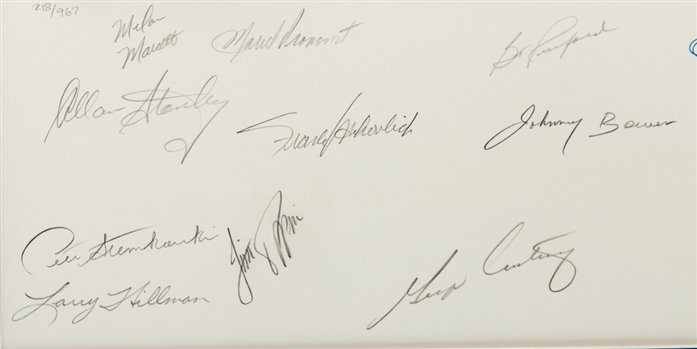 218/967
Milan
Marcetta
Marcel Pronovost
Bob Pulford
Allan Stanley
Frank Mahovlich
Johnny Bower
Pete Stemkowski
Jim Pappin
Larry Hillman